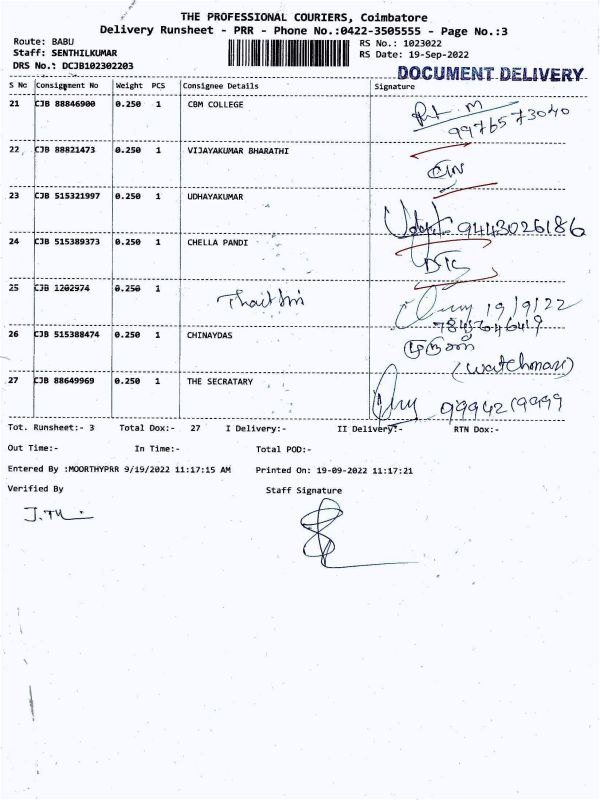 THE PROFESSIONAL COURIERS, Coimbatore
Delivery Runsheet - PRR - Phone No.:0422-3505555 - Page No.:3
Route: BABU
RS No.: 1023022
Staff: SENTHILKUMAR
RS Date: 19-Sep-2022
DRS No.: DCJB102302203
DOCUMENT DELIVERY
S No Consignment No Weight PCS Consignee Details Signature
21 CJB 88846900 0.250 1 CBM COLLEGE
9976573040
22 CJB 88821473 0.250 1 VIJAYAKUMAR BHARATHI
23 CJB 515321997 0.250 1 UDHAYAKUMAR
9443026186
24 CJB 515389373 0.250 1 CHELLA PANDI
25 CJB 1202974 0.250 1
19/9/22
26 CJB 515388474 0.250 1 CHINAYDAS
முருகன்
(watchman)
27 CJB 88649969 0.250 1 THE SECRATARY
9994219999
Tot. Runsheet:- 3 Total Dox:- 27 I Delivery:- II Delivery:- RTN Dox:-
Out Time:- In Time:- Total POD:-
Entered By :MOORTHYPRR 9/19/2022 11:17:15 AM Printed On: 19-09-2022 11:17:21
Verified By Staff Signature